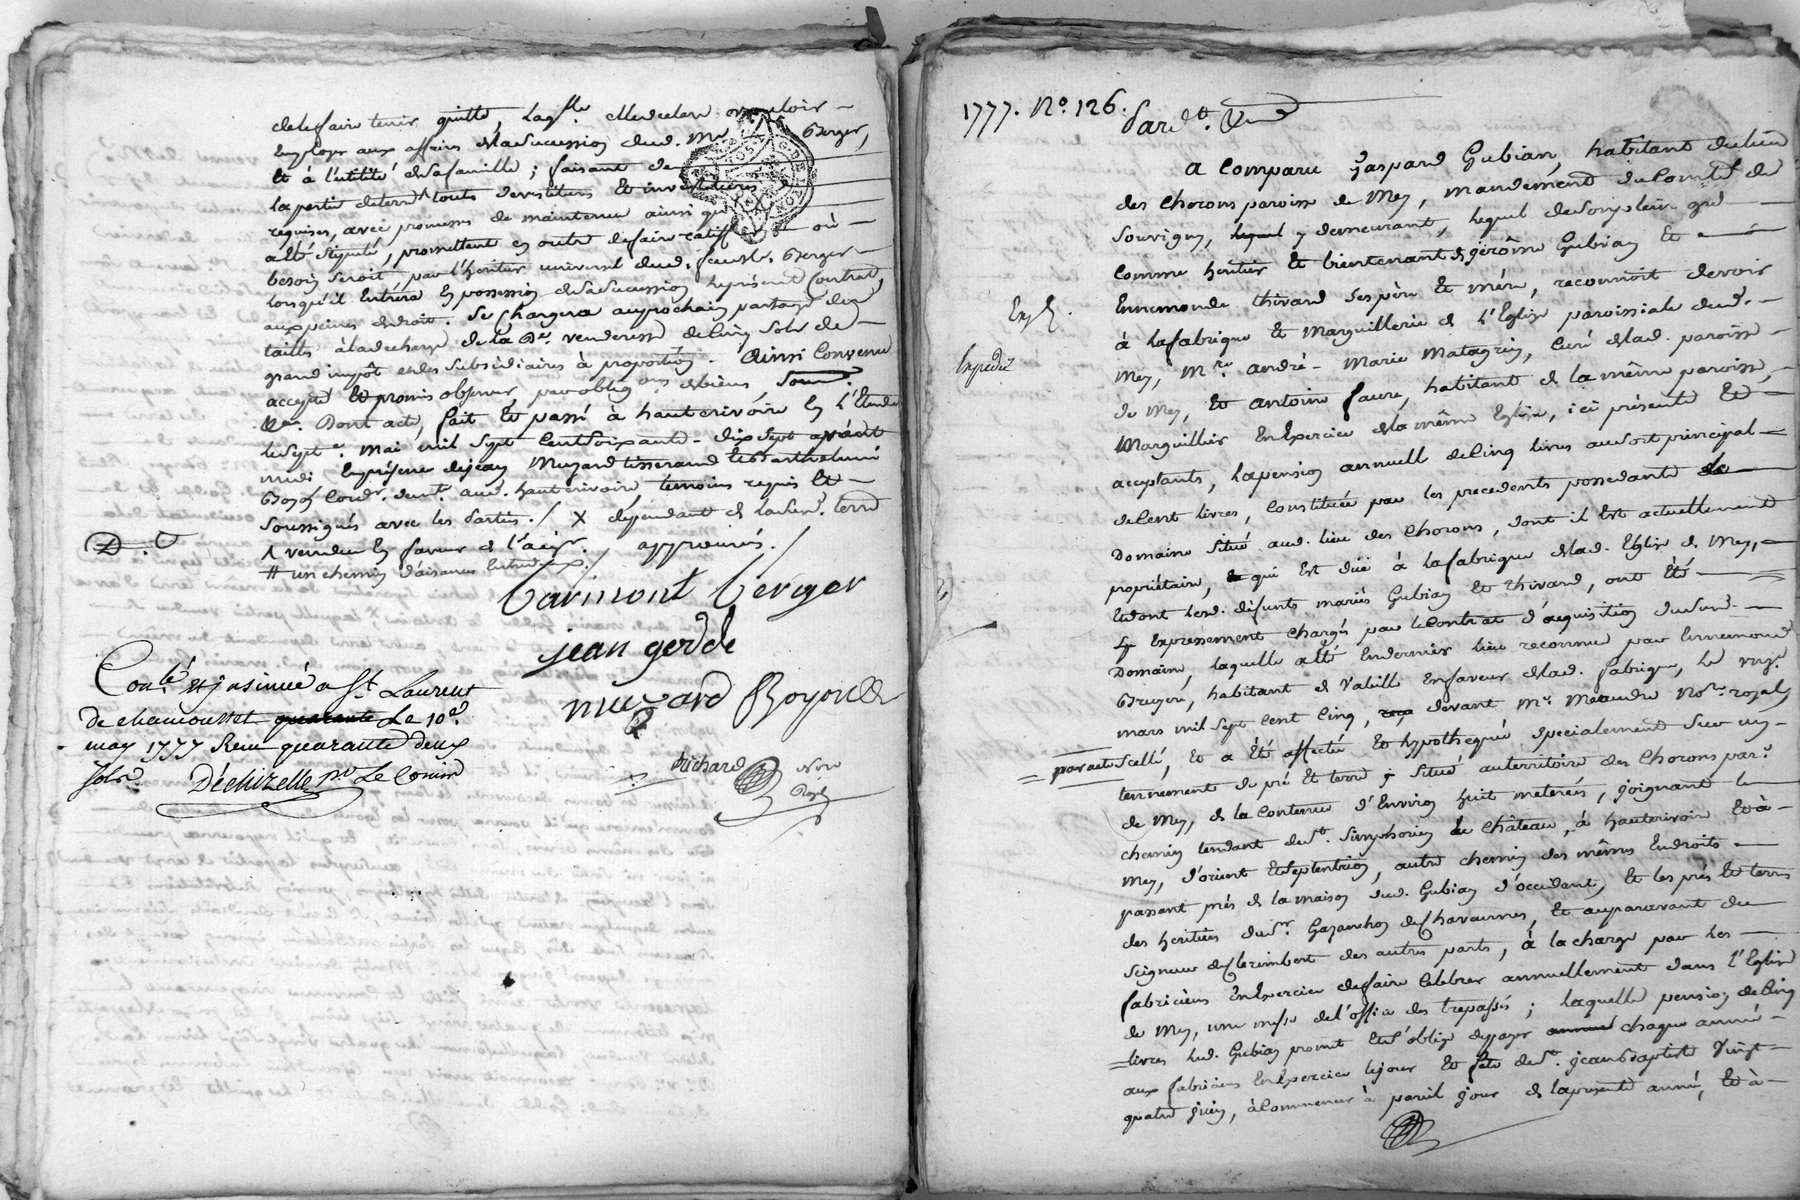 de le faire tenir quitte, laqlle elle declare vouloir
employer aux affaires de la succession dud. Me Berger,
Et à l'utilité de sa famille ; faisant de
la partie de terre ^ touts devestitures Et investitures
requises, avec promesses de maintenue ainsi qu'
a été stipulé, promettent en outre de faire ratif où
besoin seroit par l'heritier universel dud. feu Me. Berger
lorsqu'il Entrera En possession de sa succession le present Contrat,
aux peines de droit. Se chargera au prochain partage des
tailles à la decharge de la De. venderesse de Cinq Sols de
grand impôt et des subsidiaires à proportion. Ainsi Convenu
accepté Et promis observer par oblig.ons de biens
Dont acte, fait Et passé à hauterivoire En l'Etude
le sept.e mai mil sept Cent soixante-dix sept avant
midi En présence de jean Muzard tisserand Et Barthelemi
Boyon Cord.r demt. aud. hauterivoire temoins requis Et
soussignés avec les parties. / X dépendant de lad. terre
^ vendue En faveur de l'acqr. / approuvés. /
# un chemin d'aisance Entre deux /
D.C
Carmont berger
jean gerde
muzard Boyon
Richard Nore Royal
Conlé et jnsinué a St. Laurent
de chamousset quarante Le 10e
may 1777 Reçu quarante deux
sols Déchizelle pr Le Comis
1777. No. 126.
Pardt.
A Comparu Gaspard Gubian, habitant du lieu
des Chorons paroisse de Mey, mandement du Comté de
Souvigny, lequel y demeurant, lequel de son plein gré
Comme héritier Et bientenant de jerôme Gubian Et
Ennemonde thivard ses père Et mère, reconnoit devoir
à la fabrique Et Marguillerie de l'Eglise paroissiale dud.
Mey, Mre. andré-Marie Matagrin, Curé de lad. paroisse
de Mey, Et antoine faure, habitant de la même paroisse,
Marguillier En Exercice de la même Eglise, ici présents Et
acceptants, la pension annuelle de Cinq livres au sort principal
de Cent livres, Constituée par les precedents possedants le
Domaine Situé aud. lieu des Chorons, dont il Est actuellement
propriétaire, qui Est düe à la fabrique de lad. Eglise de Mey,
Et dont lesd. défunts mariés Gubian Et thivard, ont Eté
Expressement Chargés par le Contrat d'acquisition dud.
Domaine, laquelle a été En dernier lieu reconnue par Ennemond
Bruyere, habitant de En faveur de lad. fabrique, le
mars mil sept Cent Cinq, reçu devant Me. Meaudre Nore. royal
= par acte Scellé, Et a été affectée Et hypothequée specialement sur un
tennement de pré Et terre Situé au territoire des Chorons par.
de Mey, de la Contenue d'Environ huit meterées, joignant le
chemin tendant de St. Simphorien le Château, à hauterivoire Et à
Mey, d'orient Et Septentrion, autre chemin des mêmes Endroits
passant près de la maison dud. Gubian d'occident, Et les prés Et terres
des heritiers du Sr. Gazanchon de Chavannes, Et auparavant du
Seigneur de Clerimbert des autres parts, à la charge par les
fabriciens En Exercice de faire Celebrer annuellement dans l'Eglise
de Mey, une messe de l'office des trepassés ; laquelle pension de Cinq
=livres led. Gubian promet Et s'oblige de payer annuel chaque année
aux fabriciens En Exercice le jour Et fête de St. jean Baptiste Vingt
quatre juin, à Commencer à pareil jour de la présente année, Et à
Expédié